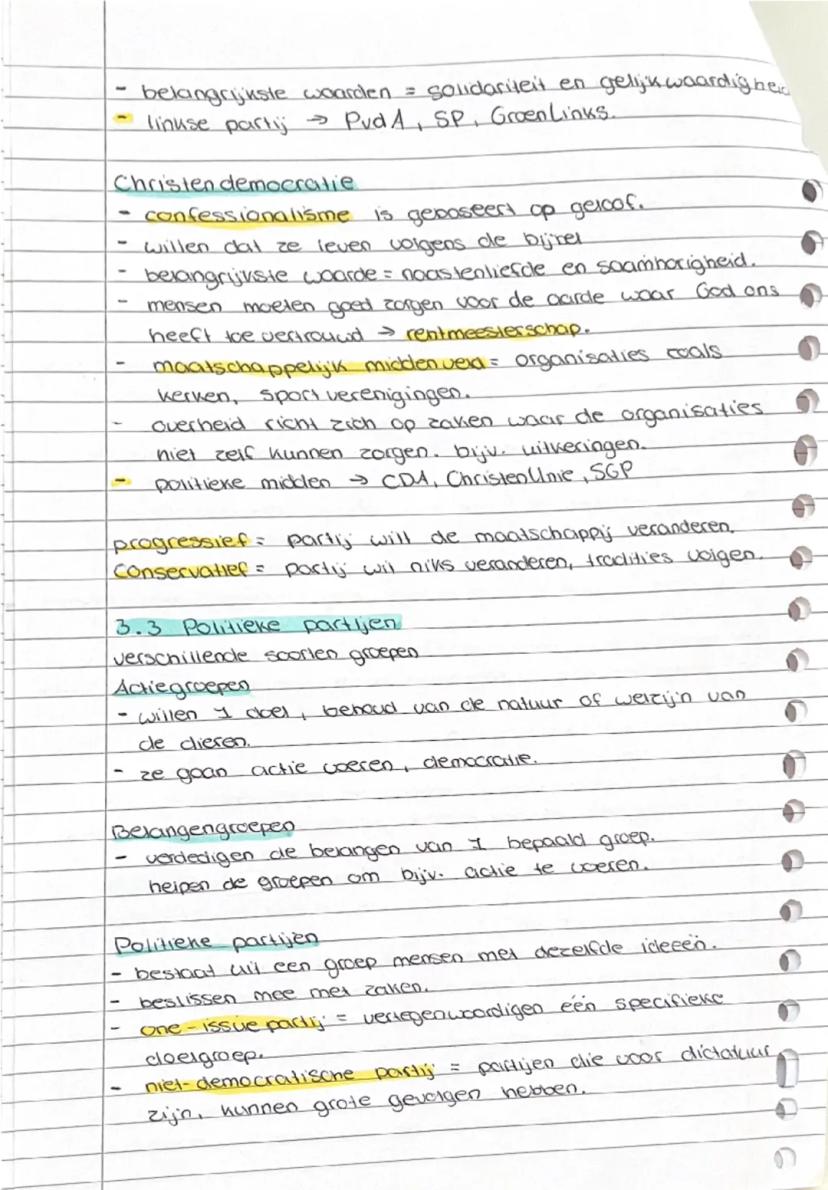 - belangrijkste waarden = solidariteit en gelijkwaardigheid
- linkse partij → PvdA, SP, GroenLinks.
Christendemocratie
- confessionalisme is gebaseert op geloof.
- willen dat ze leven volgens de bijbel
- belangrijkste waarde = naastenliefde en saamhorigheid.
- mensen moeten goed zorgen voor de aarde waar God ons
heeft toe vertrouwd → rentmeesterschap.
- maatschappelijk middenveld = organisaties zoals
kerken, sportverenigingen.
- overheid richt zich op zaken waar de organisaties
niet zelf kunnen zorgen. bijv. uitkeringen.
- politieke midden → CDA, ChristenUnie, SGP
progressief = partij will de maatschappij veranderen.
Conservatief = partij wil niks veranderen, tradities volgen.
3.3 Politieke partijen
verschillende soorten groepen
Actiegroepen
- willen 1 doel, behoud van de natuur of welzijn van
de dieren.
- ze gaan actie voeren, democratie.
Belangengroepen
- verdedigen de belangen van 1 bepaald groep.
helpen de groepen om bijv. actie te voeren.
Politieke partijen
- bestaat uit een groep mensen met dezelfde ideeën.
- beslissen mee met zaken.
- one-issue partij = vertegenwoordigen één specifieke
doelgroep.
- niet-democratische partij = partijen die voor dictatuur
zijn, kunnen grote gevolgen hebben.